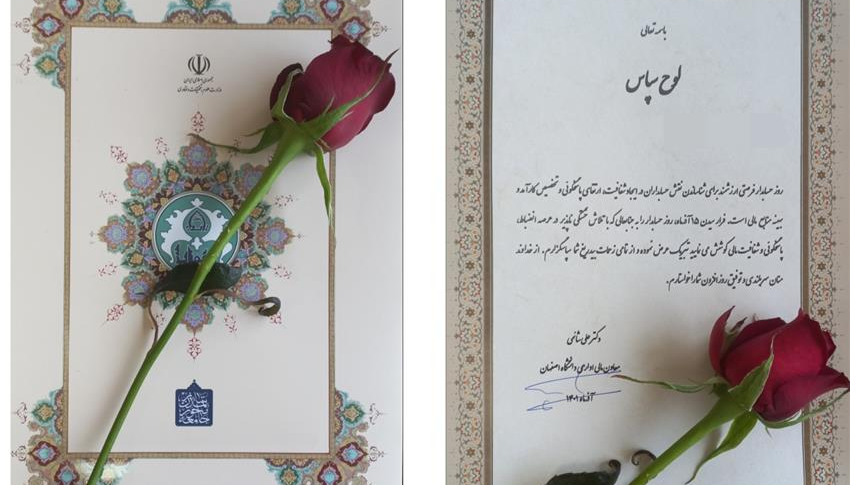 جمهوری اسلامی ایران
وزارت علوم، تحقیقات و فناوری
باسمه تعالی
لوح سپاس
روز حسابدار فرصتی ارزشمند برای شناساندن نقش حسابداران در ایجاد شفافیت، ارتقای پاسخگویی و تخصیص کارآمد و
بهینه منابع مالی است. فرا رسیدن ۱۵ آذرماه، روز حسابدار را به جنابعالی که با تلاش خستگی ناپذیر در عرصه انضباط،
پاسخگویی و شفافیت مالی کوشش می نمایید تبریک عرض نموده و از تمامی زحمات بیدریغ شما سپاسگزارم. از خداوند
منان سربلندی و توفیق روزافزون شما را خواستارم.
دکتر علی شائمی
معاون مالی اداری دانشگاه اصفهان
آذرماه ۱۴۰۱